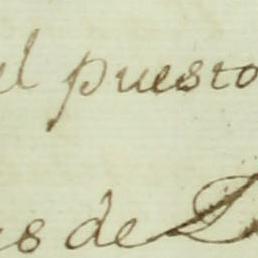 el puesto
es de